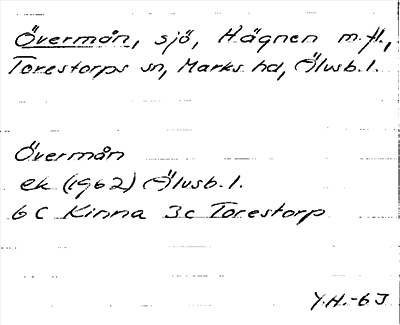 Övermån, sjö, Hägnen m.fl.,
Torestorps sn, Marks hd, Älvsb. l.
Övermån
ek (1962) Älvsb. l.
6C Kinna 3c Torestorp
Y.H.-63